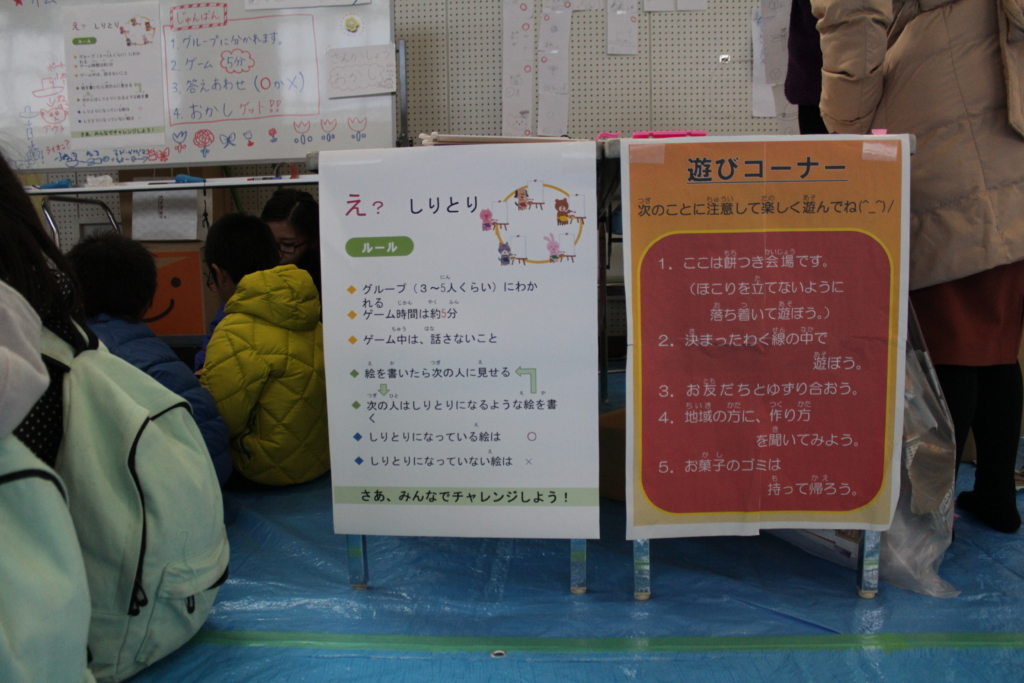 じゅんばん
1. グループに分かれます。
2. ゲーム 5分
3. 答えあわせ(○か×)
4. おかしゲット!!
え? しりとり
ルール
さあ、みんなでチャレンジしよう!
え? しりとり
ルール
グループ(3～5人くらい)にわか
れる
ゲーム時間は約5分
ゲーム中は、話さないこと
絵を書いたら次の人に見せる
次の人はしりとりになるような絵を書
く
しりとりになっている絵は ○
しりとりになっていない絵は ×
さあ、みんなでチャレンジしよう!
遊びコーナー
次のことに注意して楽しく遊んでね(^_^)/
1. ここは餅つき会場です。
(ほこりを立てないように
落ち着いて遊ぼう。)
2. 決まったわく線の中で
遊ぼう。
3. お友だちとゆずり合おう。
4. 地域の方に、作り方
を聞いてみよう。
5. お菓子のゴミは
持って帰ろう。